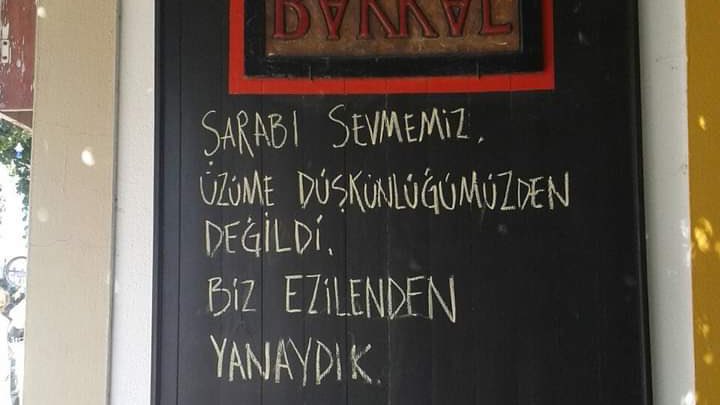 BAKKAL
ŞARABI SEVMEMİZ,
ÜZÜME DÜŞKÜNLÜĞÜMÜZDEN
DEĞİLDİ.
BİZ EZİLENDEN
YANAYDIK.